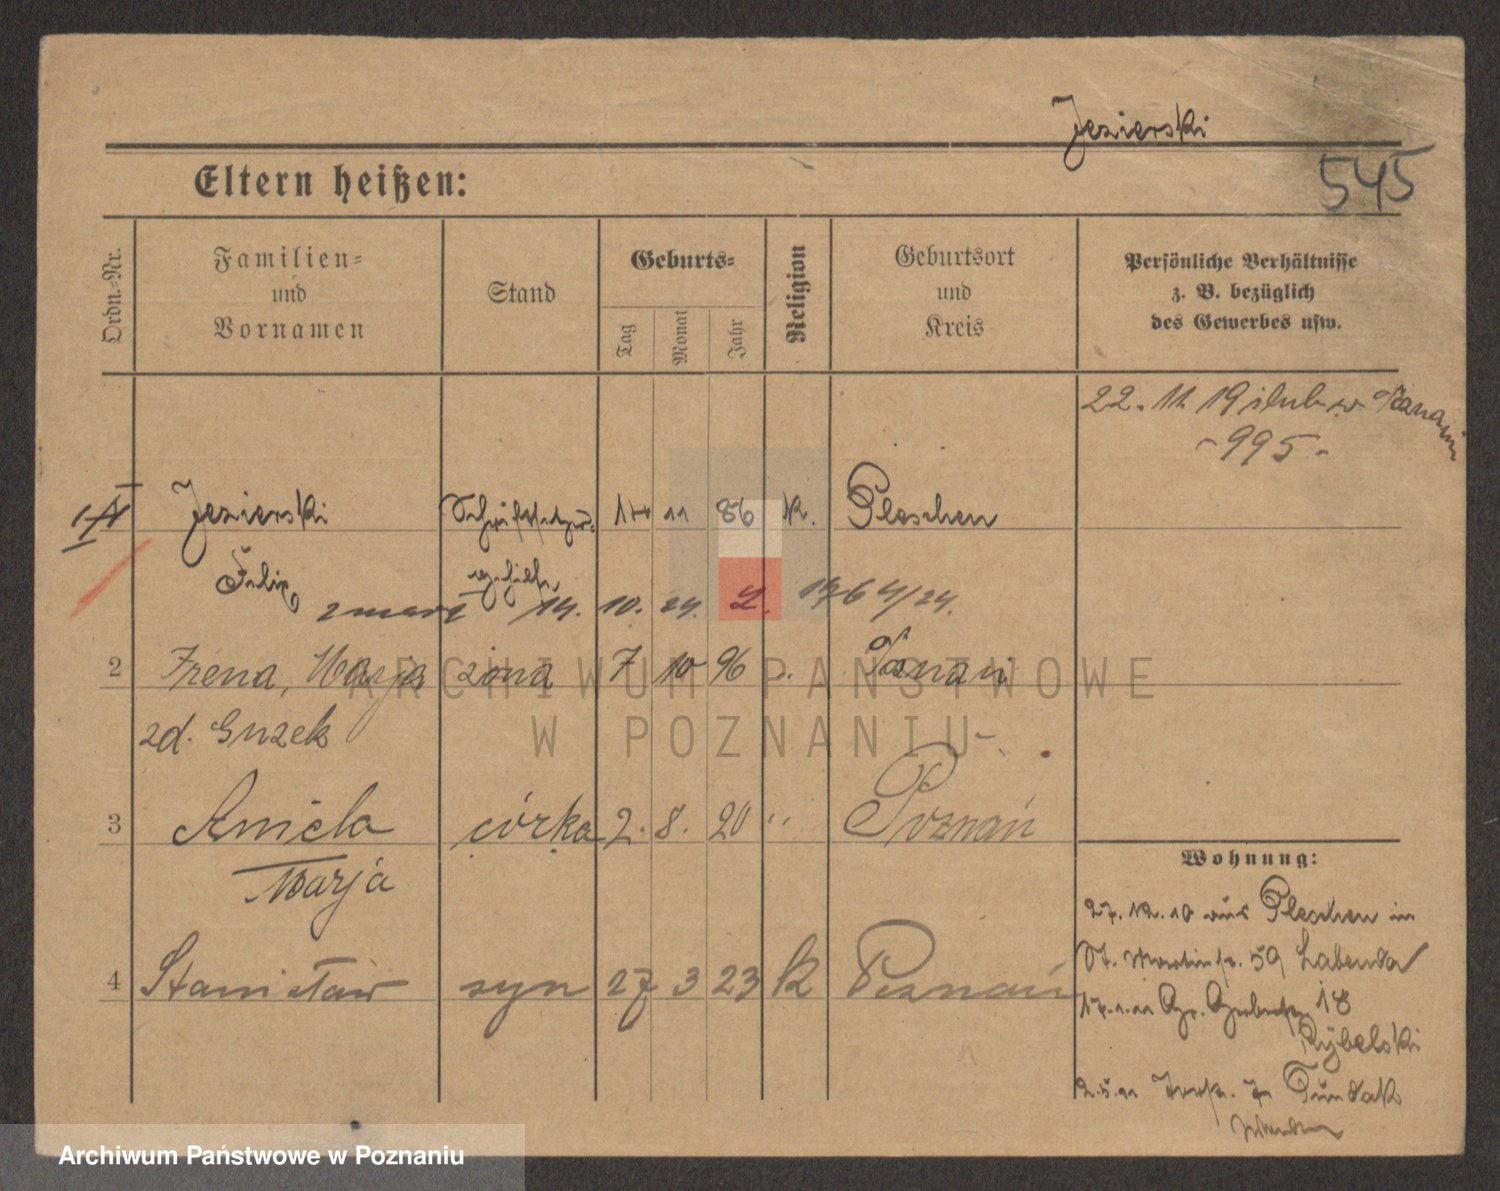 Jezierski
545
Eltern heißen:
Ordn.-Nr.
Familien-
und
Vornamen
Stand
Geburts-
Tag
Monat
Jahr
Religion
Geburtsort
und
Kreis
Persönliche Verhältnisse
z. B. bezüglich
des Gewerbes usw.
22. 11. 19 ślub w Poznaniu
- 995 -
Jezierski Schriftsetzer- 11 86 k. Pleschen
Felix gehilfe
14. 10. 24. 4/24.
2 Irena, Marja żona 7 10 96 Poznań
zd. Guzek
3 Aniela córka 2. 8. 20 " Poznań
Marja
4 Stanisław syn 27 3 23 k Poznań
Wohnung:
27. 12. 10 aus Pleschen in
St. Martinstr. 59
17. 1. 11 Gr. Gerberstr. 18
Rybelski
2. 5. 11
ARCHIWUM PAŃSTWOWE
W POZNANIU
Archiwum Państwowe w Poznaniu